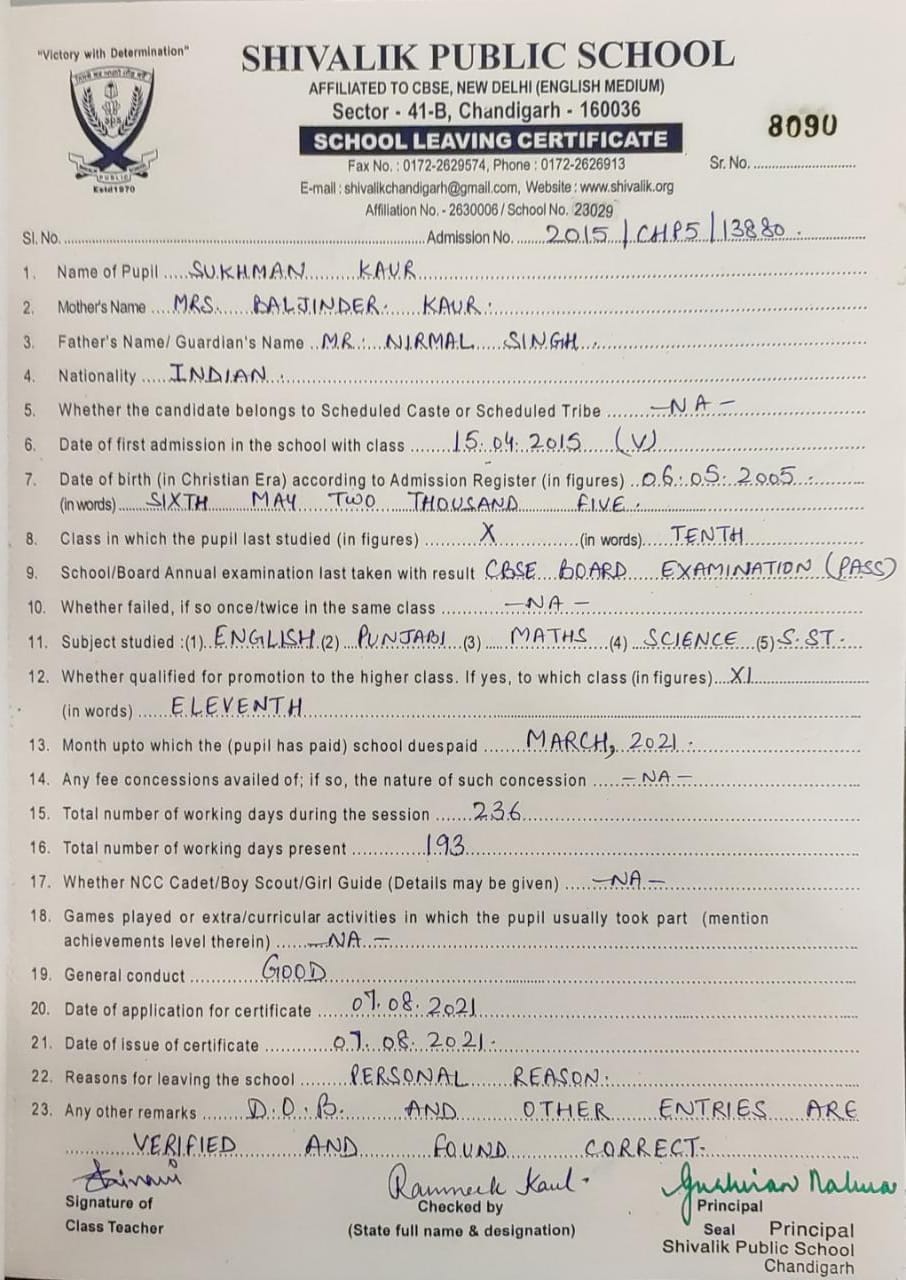 "Victory with Determination"
SHIVALIK PUBLIC SCHOOL
AFFILIATED TO CBSE, NEW DELHI (ENGLISH MEDIUM)
Sector - 41-B, Chandigarh - 160036
SCHOOL LEAVING CERTIFICATE
8090
Fax No. : 0172-2629574, Phone : 0172-2626913
Sr. No. ..........
E-mail : shivalikchandigarh@gmail.com, Website : www.shivalik.org
Estd1970
Affiliation No. - 2630006 / School No. 23029
Sl. No. .......... Admission No. ..... 2015 / CHP5 / 13880 .
1. Name of Pupil ..... SUKHMAN KAUR
2. Mother's Name .... MRS. BALJINDER. KAUR.
3. Father's Name/ Guardian's Name .. MR. NIRMAL SINGH .
4. Nationality ..... INDIAN .
5. Whether the candidate belongs to Scheduled Caste or Scheduled Tribe ....... -NA-
6. Date of first admission in the school with class ...... 15.04.2015 (V)
7. Date of birth (in Christian Era) according to Admission Register (in figures) .. 06.05.2005.
(in words) ..... SIXTH MAY TWO THOUSAND FIVE .
8. Class in which the pupil last studied (in figures) ....... X ....... (in words) .... TENTH
9. School/Board Annual examination last taken with result CBSE BOARD EXAMINATION (PASS)
10. Whether failed, if so once/twice in the same class ....... -NA-
11. Subject studied :(1) ENGLISH (2) PUNJABI (3) MATHS (4) SCIENCE (5) S.ST.
12. Whether qualified for promotion to the higher class. If yes, to which class (in figures) ... XI
(in words) ..... ELEVENTH
13. Month upto which the (pupil has paid) school duespaid ....... MARCH, 2021.
14. Any fee concessions availed of; if so, the nature of such concession ..... -NA-
15. Total number of working days during the session ...... 236
16. Total number of working days present ....... 193
17. Whether NCC Cadet/Boy Scout/Girl Guide (Details may be given) ..... -NA-
18. Games played or extra/curricular activities in which the pupil usually took part (mention
achievements level therein) ..... -NA-
19. General conduct ....... GOOD
20. Date of application for certificate ..... 07.08.2021
21. Date of issue of certificate ....... 07.08.2021.
22. Reasons for leaving the school ....... PERSONAL REASON.
23. Any other remarks ...... D.O.B. AND OTHER ENTRIES ARE
VERIFIED AND FOUND CORRECT.
Signature of
Class Teacher
Checked by
(State full name & designation)
Principal
Seal Principal
Shivalik Public School
Chandigarh